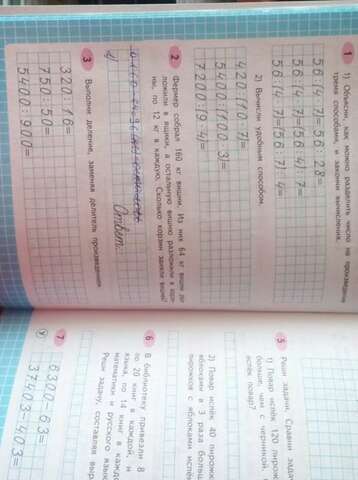 1 1) Объясни, как можно разделить число на произведение
тремя способами, и закончи вычисления.
56:(4·7)=56:28=
56:(4·7)=(56:4):7=
56:(4·7)=(56:7):4=
2) Вычисли удобным способом.
420:(10·7)=
5400:(100·3)=
7200:(9·4)=
2 Фермер собрал 160 кг вишни. Из них 64 кг вишни по
ложили в ящики, а остальную вишню разложили в корзи
ны, по 12 кг в каждую. Сколько корзин заняли вишней
Ответ:
3 Выполни деление, заменяя делитель произведением
320:16=
750:50=
5400:900=
5 Реши задачи. Сравни зада
1) Повар испёк 120 пирож
больше, чем с черникой.
испёк повар?
2) Повар испёк 40 пирожк
яблоками в 3 раза больш
пирожков с яблоками испёк
6 В библиотеку привезли 8
по 20 книг в каждой, и
языка, по 14 книг в каждо
математики и русского язык
Реши задачу, составляя выр
7 6300-63=
37403-403=